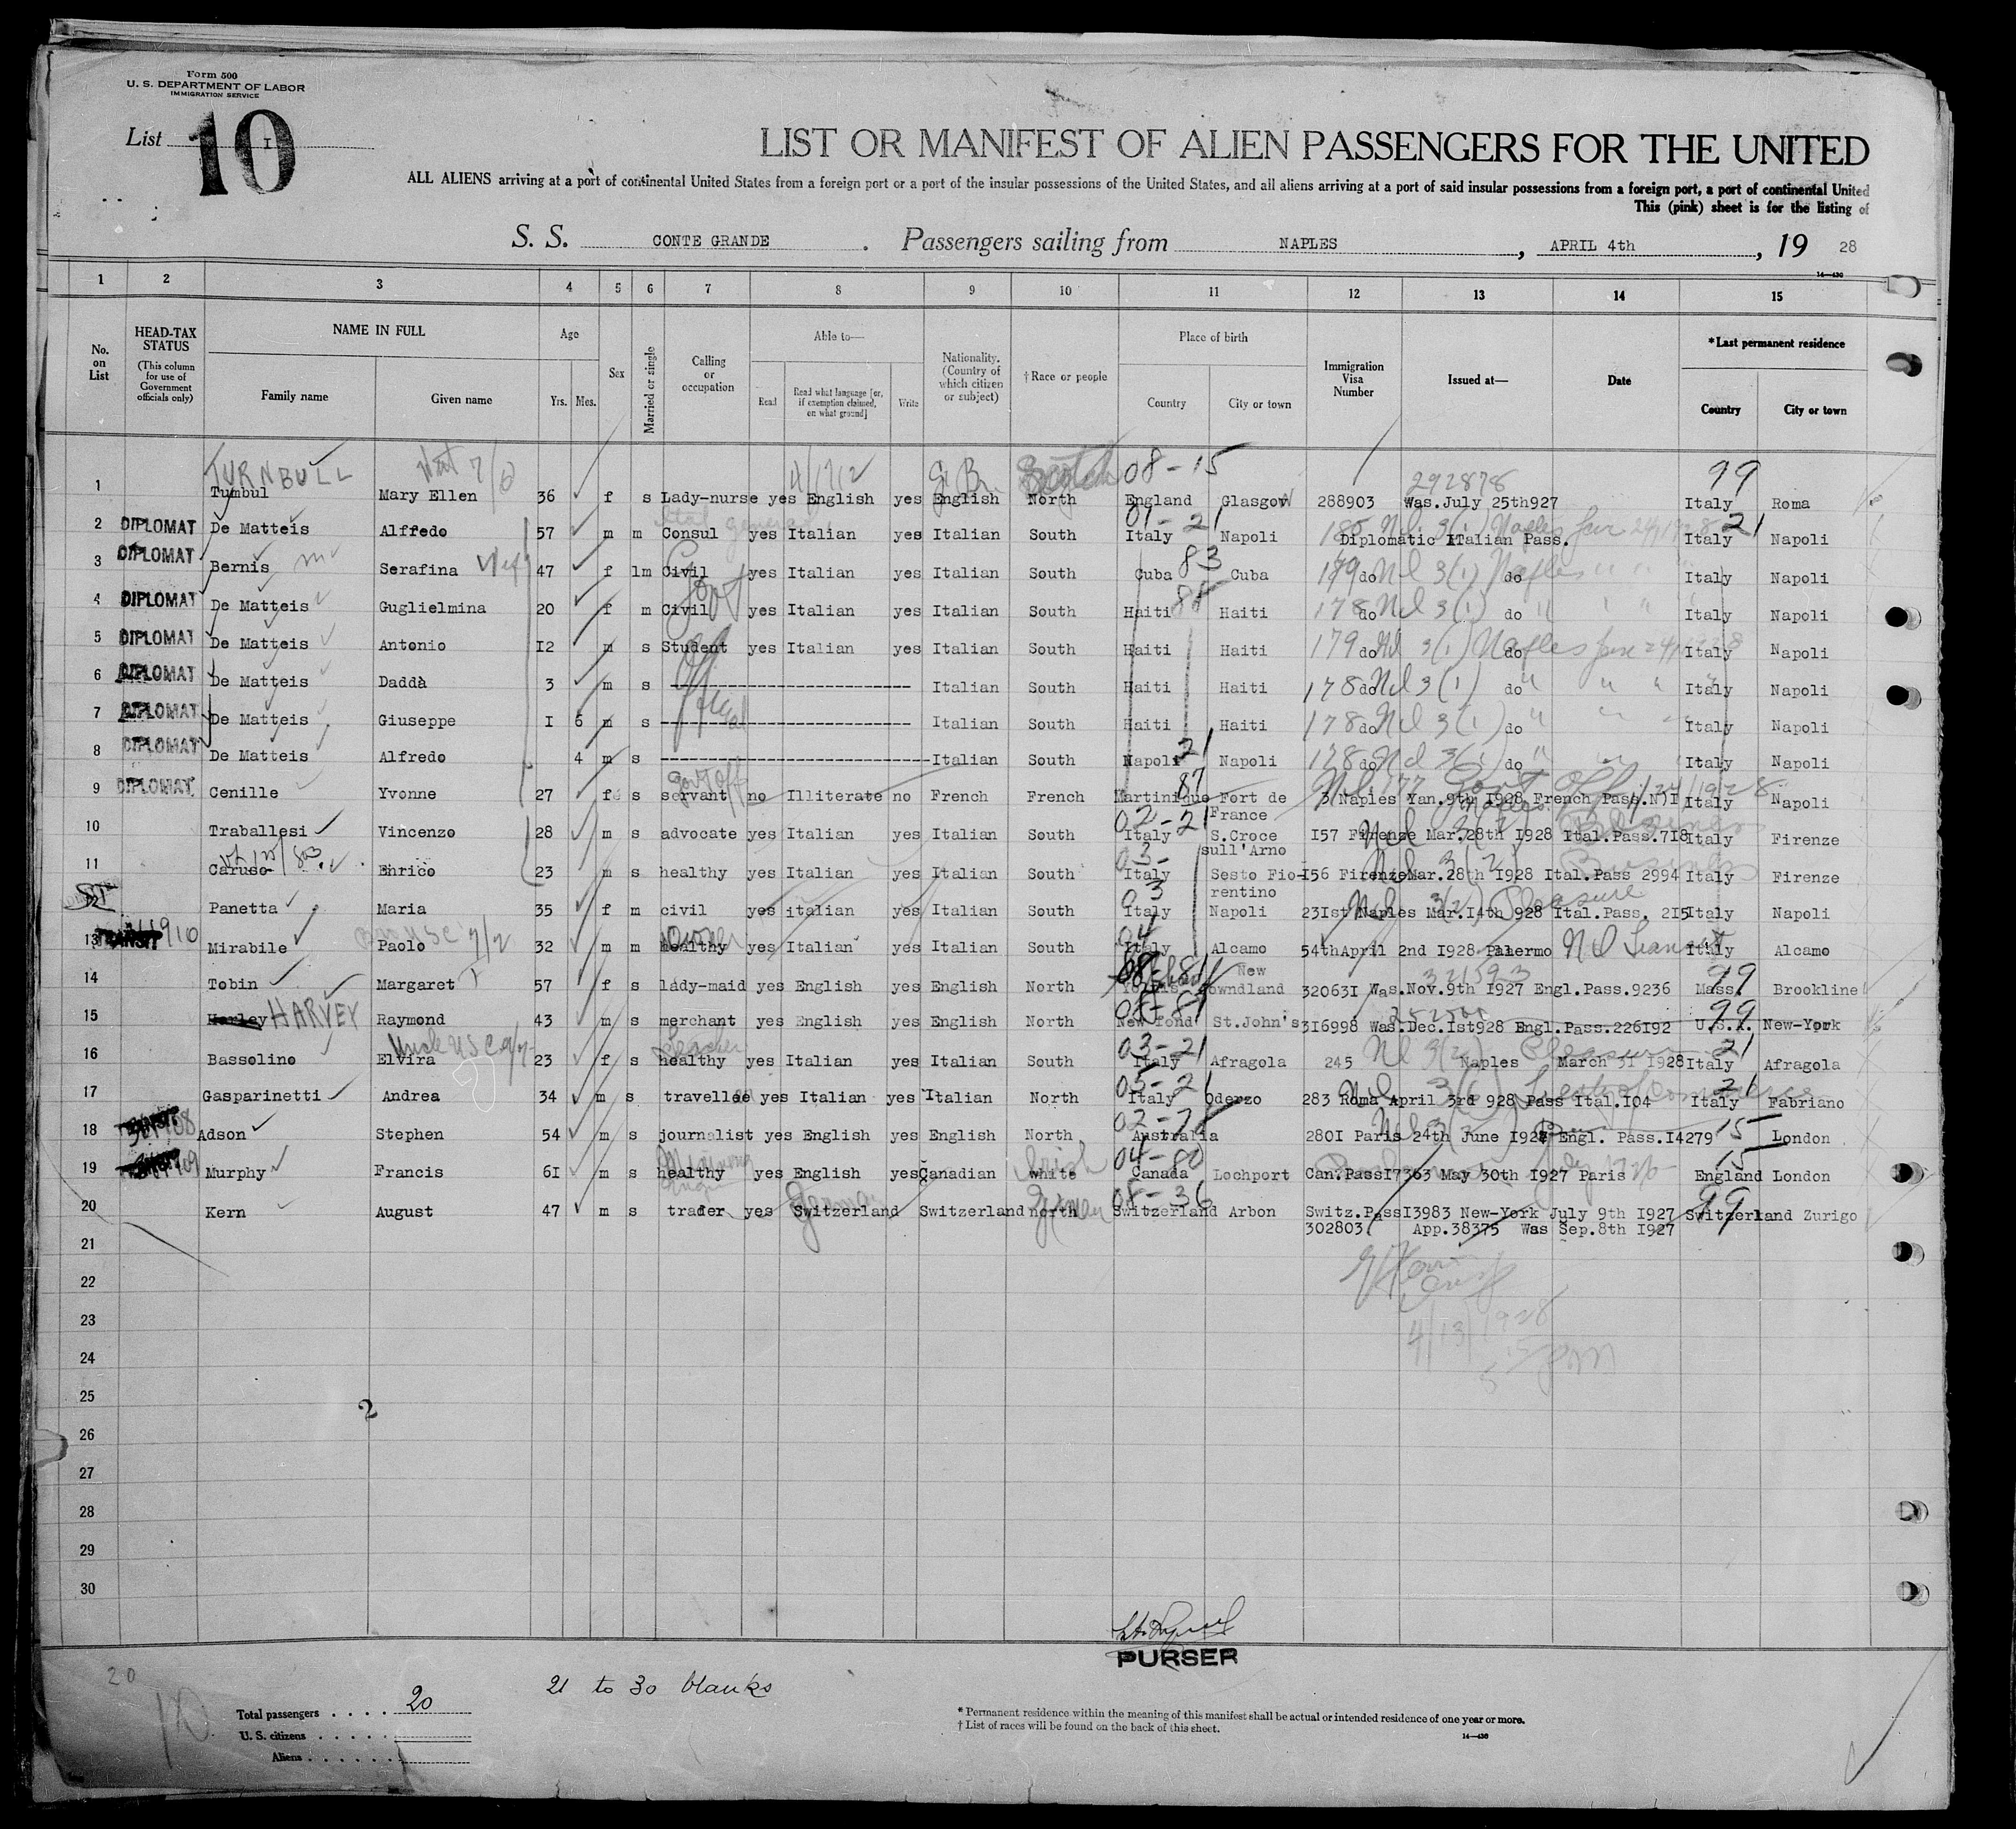 Form 500
U. S. DEPARTMENT OF LABOR
IMMIGRATION SERVICE
List 10 I
LIST OR MANIFEST OF ALIEN PASSENGERS FOR THE UNITED
ALL ALIENS arriving at a port of continental United States from a foreign port or a port of the insular possessions of the United States, and all aliens arriving at a port of said insular possessions from a foreign port, a port of continental United
This (pink) sheet is for the listing of
S. S. CONTE GRANDE. Passengers sailing from NAPLES, APRIL 4th, 19 28
14—430
1 2 3 4 5 6 7 8 9 10 11 12 13 14 15
No. on List HEAD-TAX STATUS (This column for use of Government officials only) NAME IN FULL Family name Given name Age Yrs. Mos. Sex Married or single Calling or occupation Able to— Read Read what language [or, if exemption claimed, on what ground] Write Nationality. (Country of which citizen or subject) †Race or people Place of birth Country City or town Immigration Visa Number Issued at— Date *Last permanent residence Country City or town
TURNBULL 4/1912 G. Br. Scotch 08-15 292878 99
1 Turnbul Mary Ellen 36 f s Lady-nurse yes English yes English North England Glasgow 288903 Was.July 25th927 Italy Roma
01-21 21
2 DIPLOMAT De Matteis Alfredo 57 m m Consul yes Italian yes Italian South Italy Napoli Diplomatic Italian Pass. Italy Napoli
83
3 DIPLOMAT Bernis Serafina Wife 47 f m Civil yes Italian yes Italian South Cuba Cuba 179 do Nd 3(1) Naples do Italy Napoli
4 DIPLOMAT De Matteis Guglielmina 20 f m Civil yes Italian yes Italian South Haiti 85 Haiti 178 do Nd 3(1) do Italy Napoli
5 DIPLOMAT De Matteis Antonio I2 m s Student yes Italian yes Italian South Haiti Haiti 179 do Nd 3(1) Naples do Italy Napoli
6 DIPLOMAT De Matteis Daddà 3 m s Italian South Haiti Haiti 178 do Nd 3(1) do Italy Napoli
7 DIPLOMAT De Matteis Giuseppe I 6 m s Official Italian South Haiti Haiti 178 do Nd 3(1) do Italy Napoli
8 DIPLOMAT De Matteis Alfredo 4 m s Italian South Napoli 21 Napoli 178 do Nd 3(1) do Italy Napoli
Govt Off 87 Nd 177 Govt Off 1/24/1928
9 DIPLOMAT Cenille Yvonne 27 f s servant no Illiterate no French French Martinique Fort de France 3 Naples Yan.9th I928 French Pass.N)I Italy Napoli
02-21 Nd 3(2) Business
10 Traballesi Vincenzo 28 m s advocate yes Italian yes Italian South Italy S.Croce sull'Arno I57 Firenze Mar.28th I928 Ital.Pass.7I8 Italy Firenze
03- Nd 3(2) Business
11 Caruso Enrico 23 m s healthy yes Italian yes Italian South Italy Sesto Fiorentino I56 Firenze Mar.28th I928 Ital.Pass 2994 Italy Firenze
03 Nd 3(2) Pleasure
12 Panetta Maria 35 f m civil yes italian yes Italian South Italy Napoli 23Ist Naples Mar.I4th 928 Ital.Pass. 2I5 Italy Napoli
04
13 TRANSIT Mirabile Paolo 32 m m healthy yes Italian yes Italian South Italy Alcamo 54th April 2nd I928 Palermo Nd Transit Italy Alcamo
321593 99
14 Tobin Margaret T 57 f s lady-maid yes English yes English North New foundland 32063I Was.Nov.9th I927 Engl.Pass.9236 Mass. Brookline
99
15 Harley HARVEY Raymond 43 m s merchant yes English yes English North New fond St.John's 3I6998 Was.Dec.Ist928 Engl.Pass.226I92 U.S.A. New-York
Teacher 03-21 Nd 3(2) Pleasure 21
16 Bassolino Elvira 23 f s healthy yes Italian yes Italian South Italy Afragola 245 Naples March 3I I928 Italy Afragola
05-21 Nd 3(6) 21
17 Gasparinetti Andrea 34 m s traveller yes Italian yes Italian North Italy Oderzo 283 Roma April 3rd 928 Pass Ital.I04 Italy Fabriano
02-78 15
18 TRANSIT Adson Stephen 54 m s journalist yes English yes English North Australia 280I Paris 24th June I927 Engl. Pass.I4279 London
04-80 Irish 15
19 TRANSIT Murphy Francis 6I m s healthy yes English yes Canadian white Canada Lochport Can.PassI7363 May 30th I927 Paris England London
German 08-36 99
20 Kern August 47 m s trader yes Switzerland Switzerland north Switzerland Arbon Switz.PassI3983 New-York July 9th I927 Switzerland Zurigo
302803 App.38375 Was Sep.8th I927
21
22
23 4/13/1928
24
25
2
26
27
28
29
30
PURSER
20
21 to 30 blanks
Total passengers . . . . 20
U. S. citizens . . . . .
Aliens . . . . . .
* Permanent residence within the meaning of this manifest shall be actual or intended residence of one year or more.
† List of races will be found on the back of this sheet.
14—430